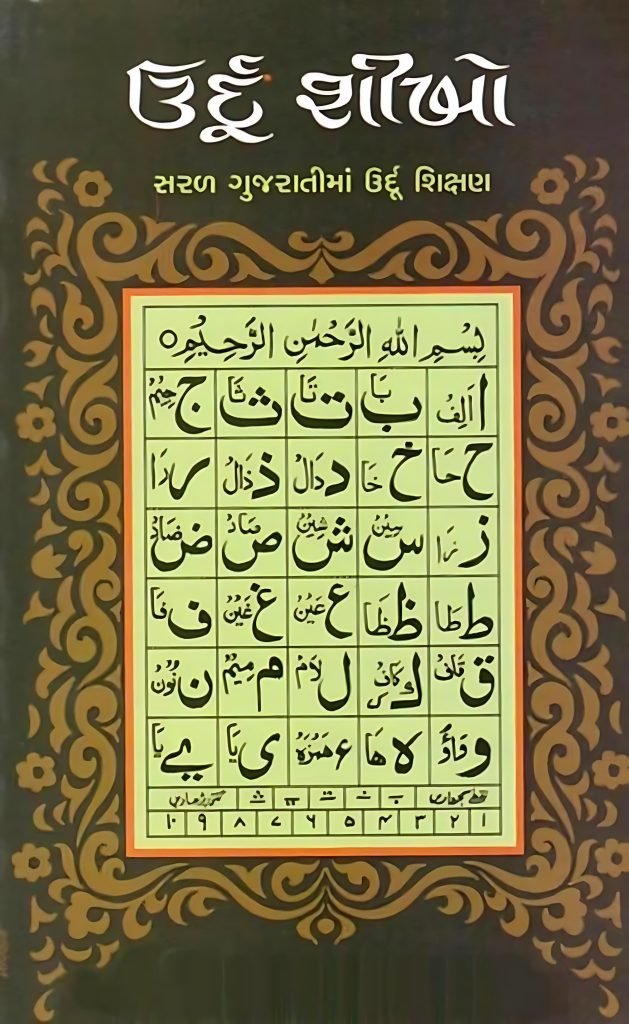 ઉર્દૂ શીખો
સરળ ગુજરાતીમાં ઉર્દૂ શિક્ષણ
بِسْمِ اللهِ الرَّحْمٰنِ الرَّحِيْمِ ○
ا اَلِفْ ب بَا ت تَا ث ثَا ج جِيْمْ
ح حَا خ خَا د دَالْ ذ ذَالْ ر رَا
ز زَا س سِيْنْ ش شِيْنْ ص صَادْ ض ضَادْ
ط طَا ظ ظَا ع عَيْنْ غ غَيْنْ ف فَا
ق قَافْ ك كَافْ ل لَامْ م مِيْمْ ن نُوْنْ
و وَاوْ ه هَا ء هَمْزَهْ ى يَا ے يَا
١ ٢ ٣ ۴ ۵ ٦ ٧ ٨ ٩ ١٠